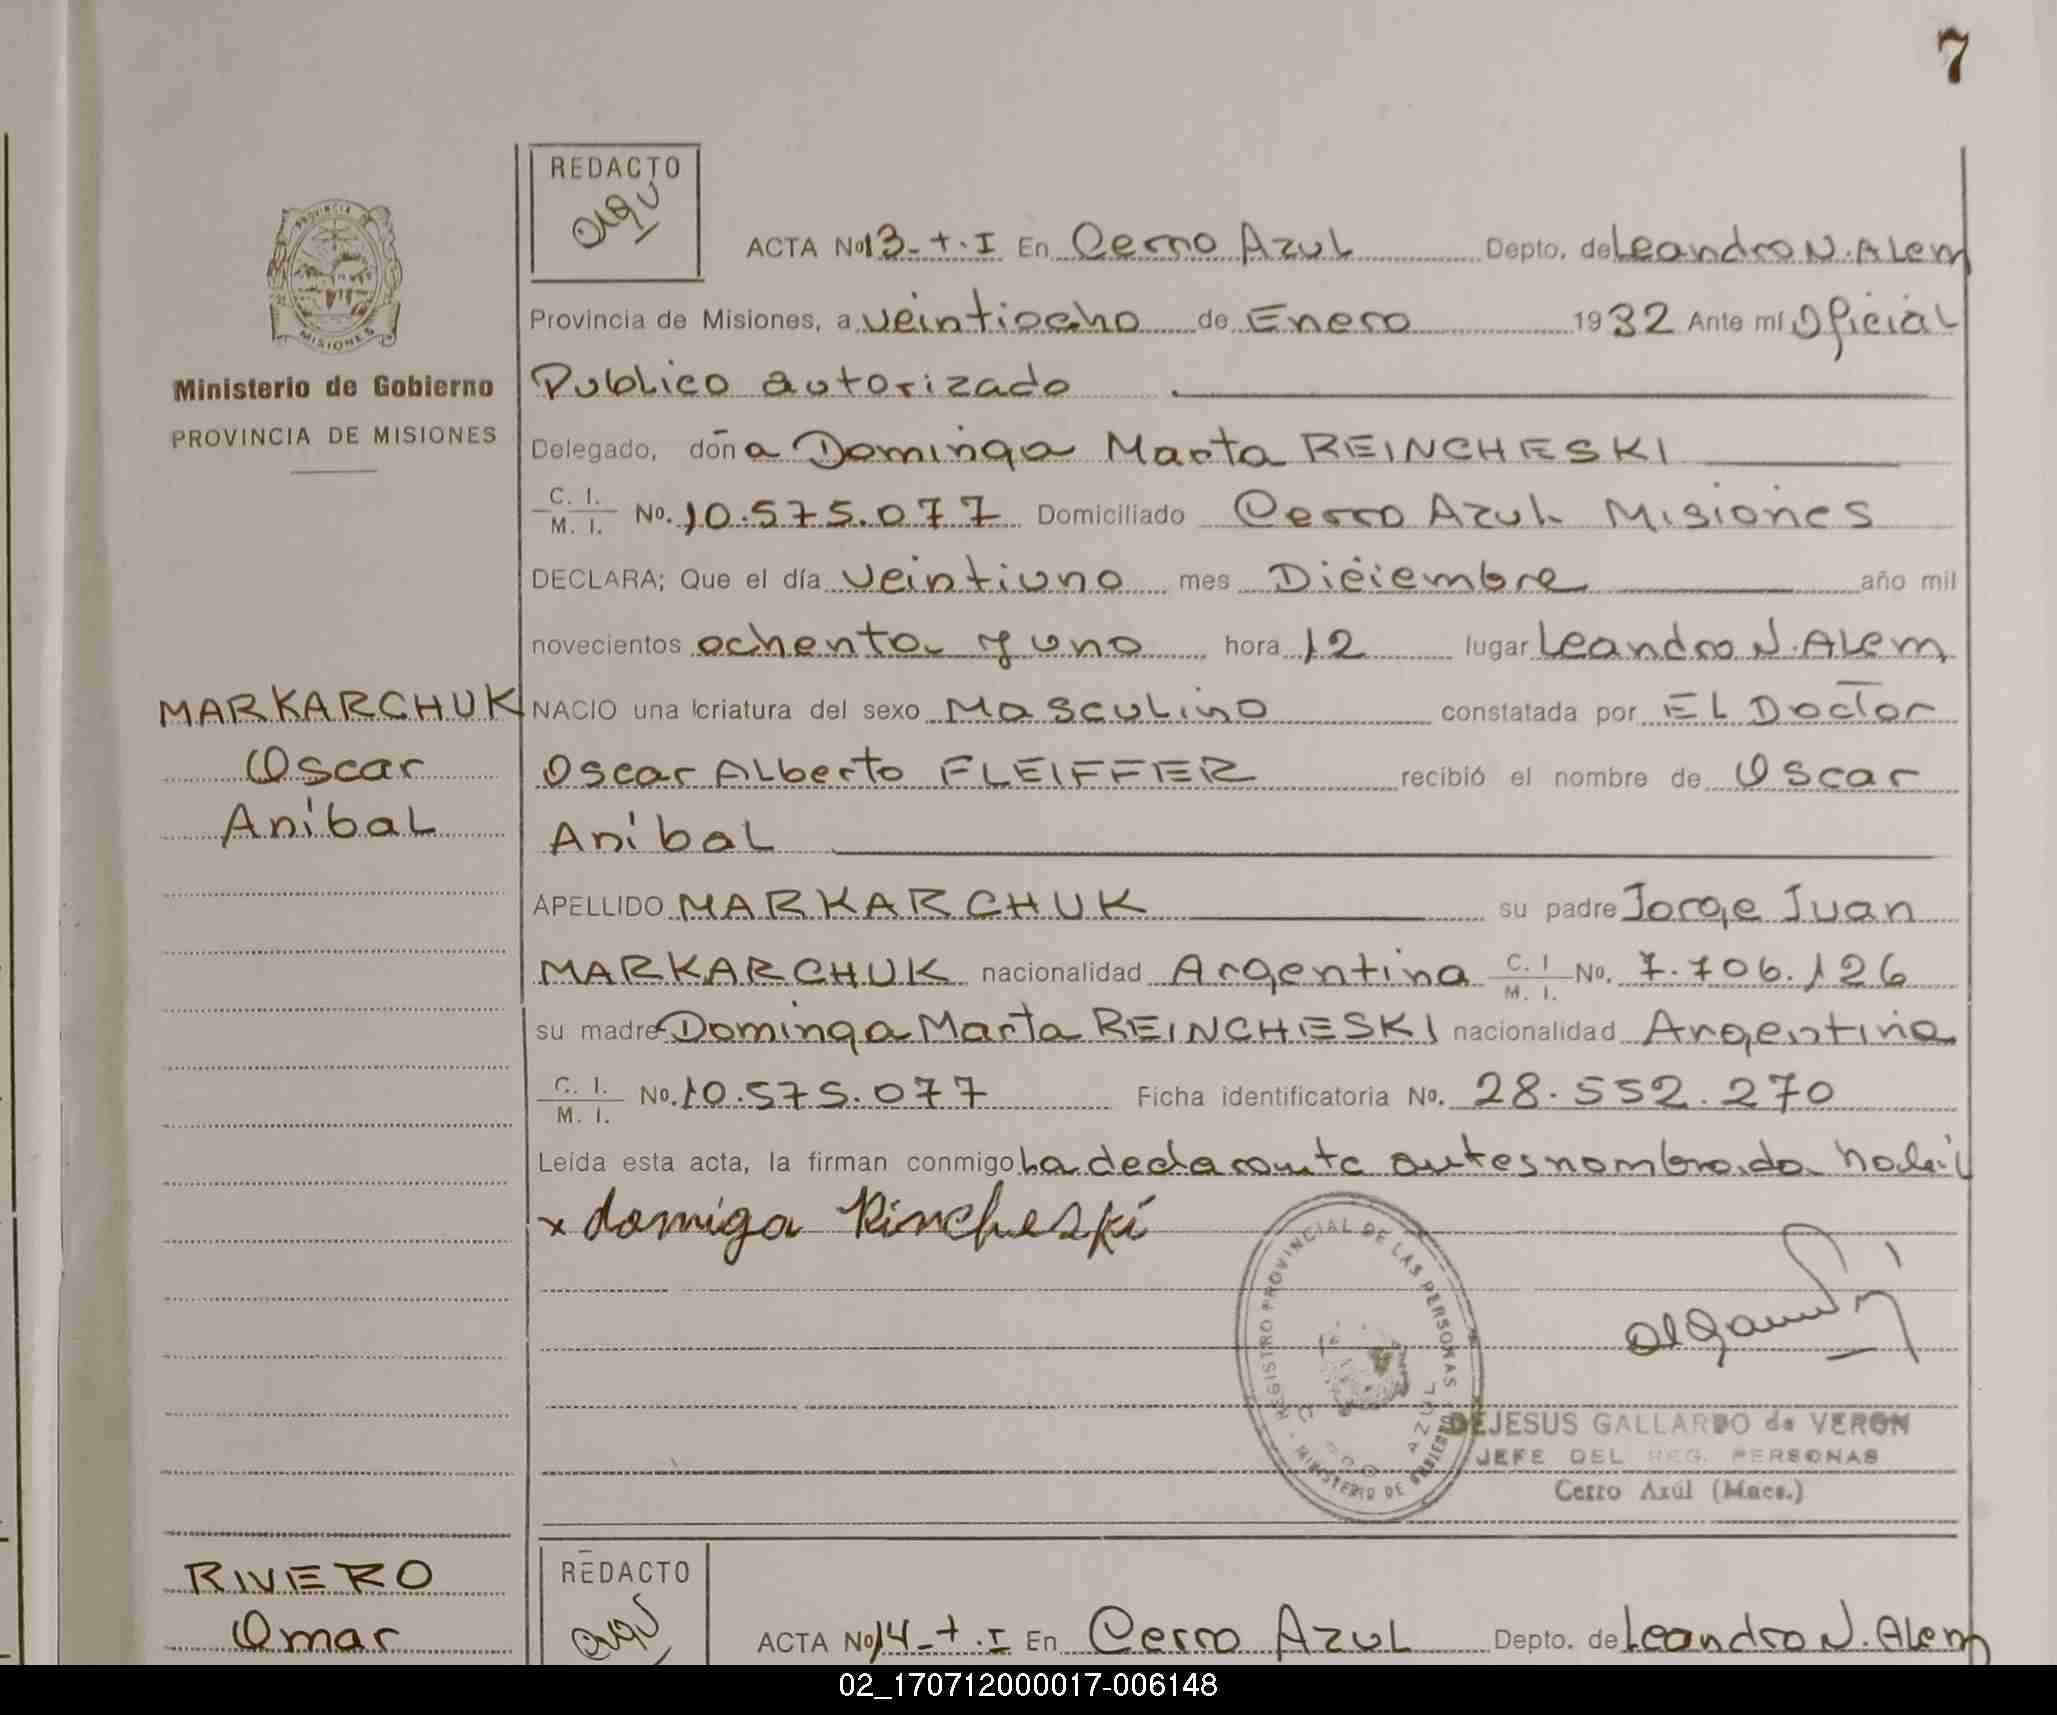 7
REDACTO
ACTA No 13 - t. I En Cerro Azul Depto. de Leandro N. Alem
PROVINCIA DE
MISIONES
Provincia de Misiones, a veintiocho de Enero 1932 Ante mí Oficial
Ministerio de Gobierno
Publico autorizado
PROVINCIA DE MISIONES
Delegado, don a Dominga Marta REINCHESKI
C. I.
M. I. No. 10.575.077 Domiciliado Cerro Azul Misiones
DECLARA; Que el día veintiuno mes Diciembre año mil
novecientos ochenta y uno hora 12 lugar Leandro N. Alem
MARKARCHUK
NACIO una criatura del sexo Masculino constatada por El Doctor
Oscar
Oscar Alberto FLEIFFER recibió el nombre de Oscar
Anibal
Anibal
APELLIDO MARKARCHUK su padre Jorge Juan
MARKARCHUK nacionalidad Argentina C. I. M. I. No. 7.706.126
su madre Dominga Marta REINCHESKI nacionalidad Argentina
C. I.
M. I. No. 10.575.077 Ficha identificatoria No. 28.552.270
Leída esta acta, la firman conmigo La declarante antesnombrada
x domiga Rincheski
REGISTRO PROVINCIAL DE LAS PERSONAS
MINISTERIO DE
AZUL
DEJESUS GALLARDO de VERON
JEFE DEL REG. PERSONAS
Cerro Azúl (Mnes.)
RIVERO
Omar
REDACTO
ACTA No 14 - t. I En Cerro Azul Depto. de Leandro N. Alem
02_170712000017-006148